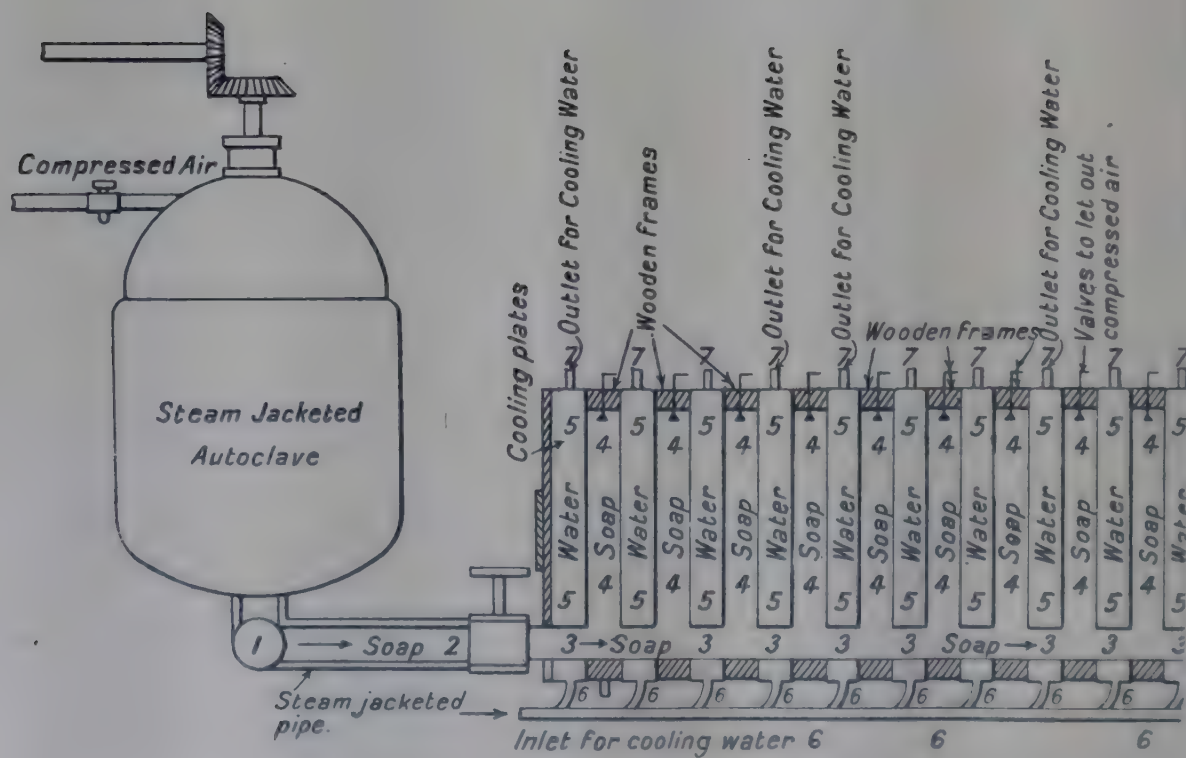 Compressed Air
Steam Jacketed
Autoclave
Cooling plates
Outlet for Cooling Water
Wooden Frames
Outlet for Cooling Water
Outlet for Cooling Water
Wooden Frames
Outlet for Cooling Water
Valves to let out
compressed air
7 7 7 7 7 7 7 7 7 7
5 4 5 4 5 4 5 4 5 4 5 4 5 4 5 4 5 4 5
Water Soap Water Soap Water Soap Water Soap Water Soap Water Soap Water Soap Water Soap Water Soap Water
5 4 5 4 5 4 5 4 5 4 5 4 5 4 5 4 5 4 5
1 Soap 2 3 Soap 3 3 3 3 Soap 3 3 3
6 6 6 6 6 6 6 6 6
Steam jacketed
pipe.
Inlet for cooling water 6 6 6